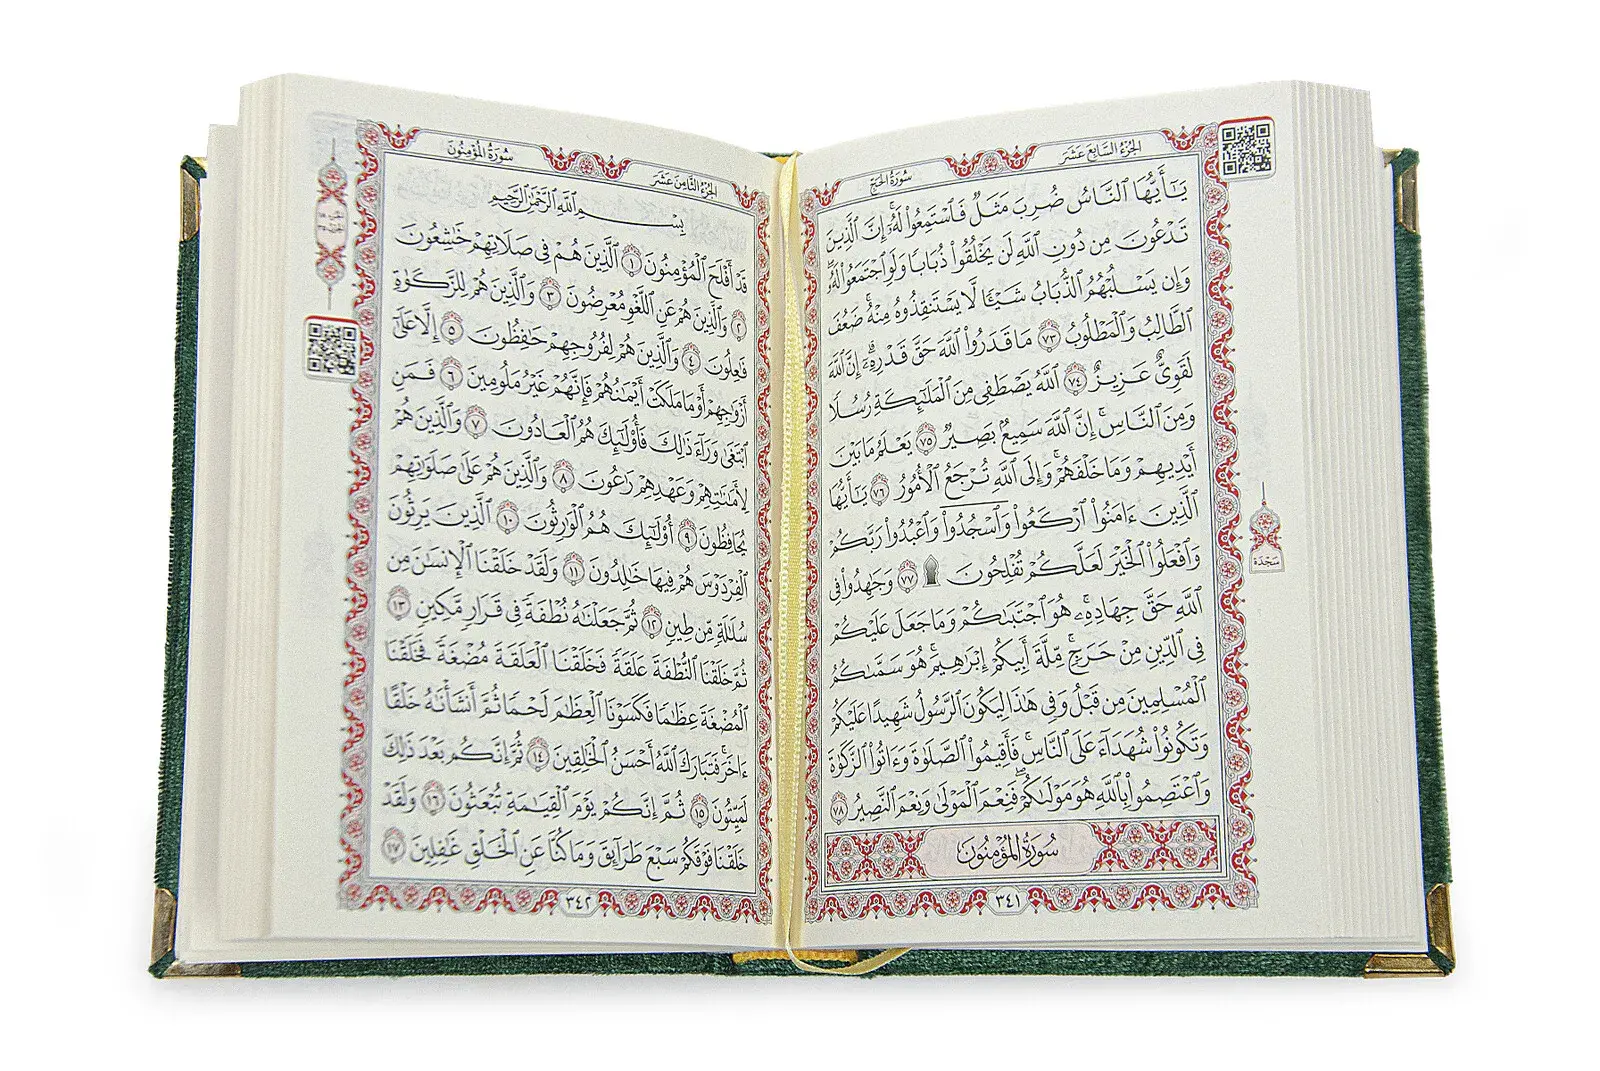 الجزء السابع عشر
سورة الحج
يَٰٓأَيُّهَا ٱلنَّاسُ ضُرِبَ مَثَلٌ فَٱسْتَمِعُوا۟ لَهُۥٓ ۚ إِنَّ ٱلَّذِينَ
تَدْعُونَ مِن دُونِ ٱللَّهِ لَن يَخْلُقُوا۟ ذُبَابًا وَلَوِ ٱجْتَمَعُوا۟ لَهُۥ ۖ
وَإِن يَسْلُبْهُمُ ٱلذُّبَابُ شَيْـًٔا لَّا يَسْتَنقِذُوهُ مِنْهُ ۚ ضَعُفَ
ٱلطَّالِبُ وَٱلْمَطْلُوبُ ٧٣ مَا قَدَرُوا۟ ٱللَّهَ حَقَّ قَدْرِهِۦٓ ۗ إِنَّ ٱللَّهَ
لَقَوِىٌّ عَزِيزٌ ٧٤ ٱللَّهُ يَصْطَفِى مِنَ ٱلْمَلَٰٓئِكَةِ رُسُلًا
وَمِنَ ٱلنَّاسِ ۚ إِنَّ ٱللَّهَ سَمِيعٌۢ بَصِيرٌ ٧٥ يَعْلَمُ مَا بَيْنَ
أَيْدِيهِمْ وَمَا خَلْفَهُمْ ۗ وَإِلَى ٱللَّهِ تُرْجَعُ ٱلْأُمُورُ ٧٦ يَٰٓأَيُّهَا
ٱلَّذِينَ ءَامَنُوا۟ ٱرْكَعُوا۟ وَٱسْجُدُوا۟ وَٱعْبُدُوا۟ رَبَّكُمْ
وَٱفْعَلُوا۟ ٱلْخَيْرَ لَعَلَّكُمْ تُفْلِحُونَ ۩ ٧٧ وَجَٰهِدُوا۟ فِى
ٱللَّهِ حَقَّ جِهَادِهِۦ ۚ هُوَ ٱجْتَبَىٰكُمْ وَمَا جَعَلَ عَلَيْكُمْ
فِى ٱلدِّينِ مِنْ حَرَجٍ ۚ مِّلَّةَ أَبِيكُمْ إِبْرَٰهِيمَ ۚ هُوَ سَمَّىٰكُمُ
ٱلْمُسْلِمِينَ مِن قَبْلُ وَفِى هَٰذَا لِيَكُونَ ٱلرَّسُولُ شَهِيدًا عَلَيْكُمْ
وَتَكُونُوا۟ شُهَدَآءَ عَلَى ٱلنَّاسِ ۚ فَأَقِيمُوا۟ ٱلصَّلَوٰةَ وَءَاتُوا۟ ٱلزَّكَوٰةَ
وَٱعْتَصِمُوا۟ بِٱللَّهِ هُوَ مَوْلَىٰكُمْ ۖ فَنِعْمَ ٱلْمَوْلَىٰ وَنِعْمَ ٱلنَّصِيرُ ٧٨
سورة المؤمنون
٣٤١
سجدة
الجزء الثامن عشر
سورة المؤمنون
بِسْمِ ٱللَّهِ ٱلرَّحْمَٰنِ ٱلرَّحِيمِ
قَدْ أَفْلَحَ ٱلْمُؤْمِنُونَ ١ ٱلَّذِينَ هُمْ فِى صَلَاتِهِمْ خَٰشِعُونَ
٢ وَٱلَّذِينَ هُمْ عَنِ ٱللَّغْوِ مُعْرِضُونَ ٣ وَٱلَّذِينَ هُمْ لِلزَّكَوٰةِ
فَٰعِلُونَ ٤ وَٱلَّذِينَ هُمْ لِفُرُوجِهِمْ حَٰفِظُونَ ٥ إِلَّا عَلَىٰٓ
أَزْوَٰجِهِمْ أَوْ مَا مَلَكَتْ أَيْمَٰنُهُمْ فَإِنَّهُمْ غَيْرُ مَلُومِينَ ٦ فَمَنِ
ٱبْتَغَىٰ وَرَآءَ ذَٰلِكَ فَأُو۟لَٰٓئِكَ هُمُ ٱلْعَادُونَ ٧ وَٱلَّذِينَ هُمْ
لِأَمَٰنَٰتِهِمْ وَعَهْدِهِمْ رَٰعُونَ ٨ وَٱلَّذِينَ هُمْ عَلَىٰ صَلَوَٰتِهِمْ
يُحَافِظُونَ ٩ أُو۟لَٰٓئِكَ هُمُ ٱلْوَٰرِثُونَ ١٠ ٱلَّذِينَ يَرِثُونَ
ٱلْفِرْدَوْسَ هُمْ فِيهَا خَٰلِدُونَ ١١ وَلَقَدْ خَلَقْنَا ٱلْإِنسَٰنَ مِن
سُلَٰلَةٍ مِّن طِينٍ ١٢ ثُمَّ جَعَلْنَٰهُ نُطْفَةً فِى قَرَارٍ مَّكِينٍ ١٣
ثُمَّ خَلَقْنَا ٱلنُّطْفَةَ عَلَقَةً فَخَلَقْنَا ٱلْعَلَقَةَ مُضْغَةً فَخَلَقْنَا
ٱلْمُضْغَةَ عِظَٰمًا فَكَسَوْنَا ٱلْعِظَٰمَ لَحْمًا ثُمَّ أَنشَأْنَٰهُ خَلْقًا
ءَاخَرَ ۚ فَتَبَارَكَ ٱللَّهُ أَحْسَنُ ٱلْخَٰلِقِينَ ١٤ ثُمَّ إِنَّكُم بَعْدَ ذَٰلِكَ
لَمَيِّتُونَ ١٥ ثُمَّ إِنَّكُمْ يَوْمَ ٱلْقِيَٰمَةِ تُبْعَثُونَ ١٦ وَلَقَدْ
خَلَقْنَا فَوْقَكُمْ سَبْعَ طَرَآئِقَ وَمَا كُنَّا عَنِ ٱلْخَلْقِ غَٰفِلِينَ ١٧
٣٤٢